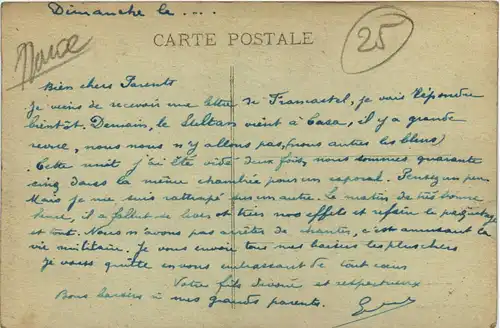 Dimanche le ....
Maroc
CARTE POSTALE
25
Bien chers Parents
Je viens de recevoir une lettre de Framastel, je vais Répondre
bientôt. Demain, le Sultan vient à Casa, il y a grande
revue, nous nous n'y allons pas, (nous autres les bleus)
Cette nuit j'ai été vidé deux fois, nous sommes quarante
cinq dans la même chambrée pour un caporal. Pensez un peu
Mais je me suis rattrapé sur un autre. Le matin de très bonne
heure, il a fallut se lever et nos effets et refaire le paquetage
et tout. Nous n'avons pas arrêtés de chanter, c'est amusant la
vie militaire. Je vous envoie tous mes baisers les plus chers
Je vous quitte en vous embrassant de tout cœur
Votre fils dévoué et respectueux
Bons baisers à mes grands parents.